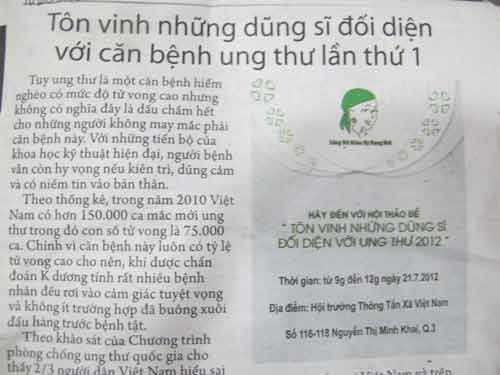 Tôn vinh những dũng sĩ đối diện
với căn bệnh ung thư lần thứ 1
Tuy ung thư là một căn bệnh hiểm
nghèo có mức độ tử vong cao nhưng
không có nghĩa đây là dấu chấm hết
cho những người không may mắc phải
căn bệnh này. Với những tiến bộ của
khoa học kỹ thuật hiện đại, người bệnh
vẫn còn hy vọng nếu kiên trì, dũng cảm
và có niềm tin vào bản thân.
Theo thống kê, trong năm 2010 Việt
Nam có hơn 150.000 ca mắc mới ung
thư trong đó con số tử vong là 75.000
ca. Chính vì căn bệnh này luôn có tỷ lệ
tử vong cao cho nên, khi được chẩn
đoán K dương tính rất nhiều bệnh
nhân đều rơi vào cảm giác tuyệt vọng
và không ít trường hợp đã buông xuôi
đầu hàng trước bệnh tật.
Theo khảo sát của Chương trình
phòng chống ung thư quốc gia cho
thấy 2/3 người dân Việt Nam hiểu sai
HÃY ĐẾN VỚI HỘI THẢO ĐỂ
" TÔN VINH NHỮNG DŨNG SĨ
ĐỐI DIỆN VỚI UNG THƯ 2012 "
Thời gian: từ 9g đến 12g ngày 21.7.2012
Địa điểm: Hội trường Thông Tấn Xã Việt Nam
Số 116-118 Nguyễn Thị Minh Khai, Q.3